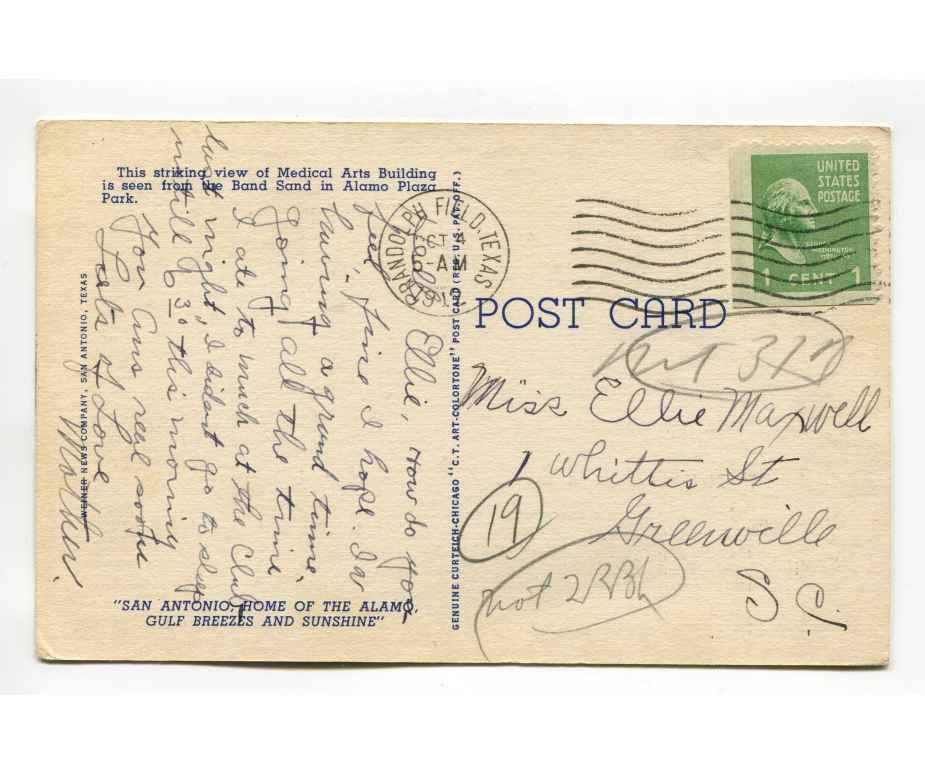 This striking view of Medical Arts Building
is seen from the Band Sand in Alamo Plaza
Park.
Ellie, How do you
feel, Fine I hope. I av
having a grand time,
Going all the time
I ate to much at the Club
last night, I didnt go to sleep
until 3 30 this morning
You Ans real soon
Lots of Love
Mother.
"SAN ANTONIO, HOME OF THE ALAMO,
GULF BREEZES AND SUNSHINE"
WEINER NEWS COMPANY, SAN ANTONIO, TEXAS
GENUINE CURTEICH-CHICAGO "C.T. ART-COLORTONE" POST CARD (REG. U.S. PAT. OFF.)
RANDOLPH FIELD, TEXAS
4
AM
UNITED
STATES
POSTAGE
1 CENT 1
POST CARD
not 317
Miss Ellie Maxwell
Whittis St
Greenville
S.C.
19
not 2